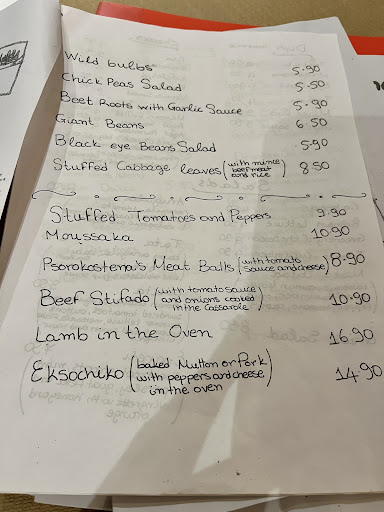 Wild bulbs 5.90
Chick Peas Salad 5.50
Beet Roots with Garlic Sauce 5.90
Giant Beans 6.50
Black eye Beans Salad 5.90
Stuffed Cabbage leaves (with mince beef meat and rice) 8.50
Stuffed Tomatoes and Peppers 9.90
Moussaka 10.90
Psorokostena's Meat Balls (with tomato sauce and cheese) 8.90
Beef Stifado (with tomato sauce and onions cooked in the casserole) 10.90
Lamb in the Oven 16.90
Eksochiko (baked Mutton or Pork with peppers and cheese in the oven) 14.90